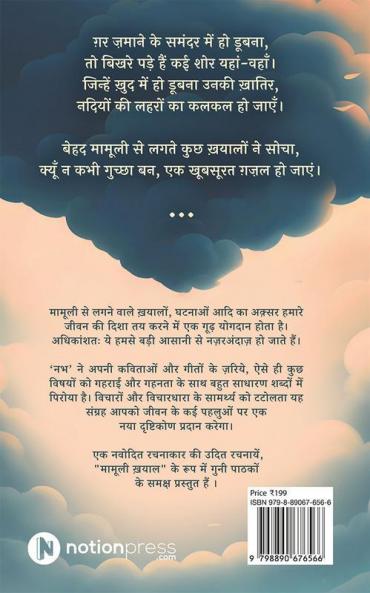 ग़र ज़माने के समंदर में हो डूबना,
तो बिखरे पड़े हैं कई शोर यहां-वहाँ।
जिन्हें ख़ुद में हो डूबना उनकी ख़ातिर,
नदियों की लहरों का कलकल हो जाएँ।
बेहद मामूली से लगते कुछ ख़यालों ने सोचा,
क्यूँ न कभी गुच्छा बन, एक खूबसूरत ग़ज़ल हो जाएं।
...
मामूली से लगने वाले ख़यालों, घटनाओं आदि का अक़्सर हमारे
जीवन की दिशा तय करने में एक गूढ़ योगदान होता है।
अधिकांशतः ये हमसे बड़ी आसानी से नज़रअंदाज़ हो जाते हैं।
'नभ' ने अपनी कविताओं और गीतों के ज़रिये, ऐसे ही कुछ
विषयों को गहराई और गहनता के साथ बहुत साधारण शब्दों में
पिरोया है। विचारों और विचारधारा के सामर्थ्य को टटोलता यह
संग्रह आपको जीवन के कई पहलुओं पर एक
नया दृष्टिकोण प्रदान करेगा।
एक नवोदित रचनाकार की उदित रचनायें,
"मामूली ख़याल" के रूप में गुनी पाठकों
के समक्ष प्रस्तुत हैं ।
Price ₹199
ISBN 979-8-89067-656-6
9 798890 676566
N notionpress
.com